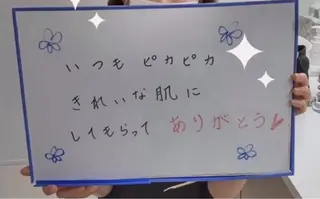 いつも ピカピカ
きれいな肌に
してもらって ありがとう♥